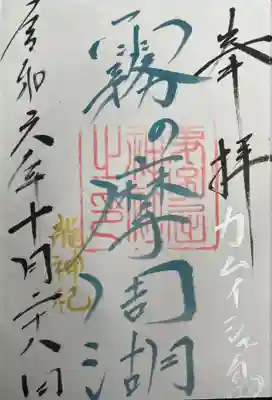 奉拝
カムイシュ島
霧の摩周湖
龍神祀
令和六年十月二十八日